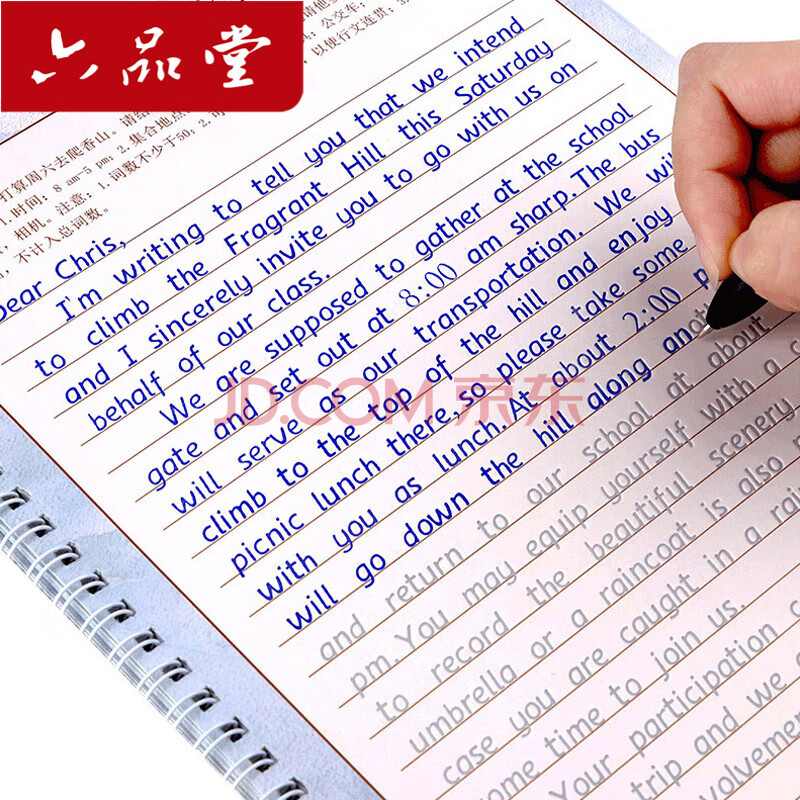 六品堂
打算周六去爬香山。请给
1.时间：8 am-5 pm；2.集合地点
公交车；
以使行文连贯；3.
相机。注意：1.词数不少于50；2.
不计入总词数。
Dear Chris,
I'm writing to tell you that we intend
to climb the Fragrant Hill this Saturday
and I sincerely invite you to go with us on
behalf of our class.
We are supposed to gather at the school
gate and set out at 8:00 am sharp. The bus
will serve as our transportation. We will
climb to the top of the hill and enjoy
picnic lunch there, so please take some
with you as lunch. At about 2:00 p
will go down the hill along another
and return to our school at about
pm. You may equip yourself with a c
to record the beautiful scenery
umbrella or a raincoat is also
case you are caught in a rai
some time to join us.
Your participation
trip and we
volvement
JD.COM 京东